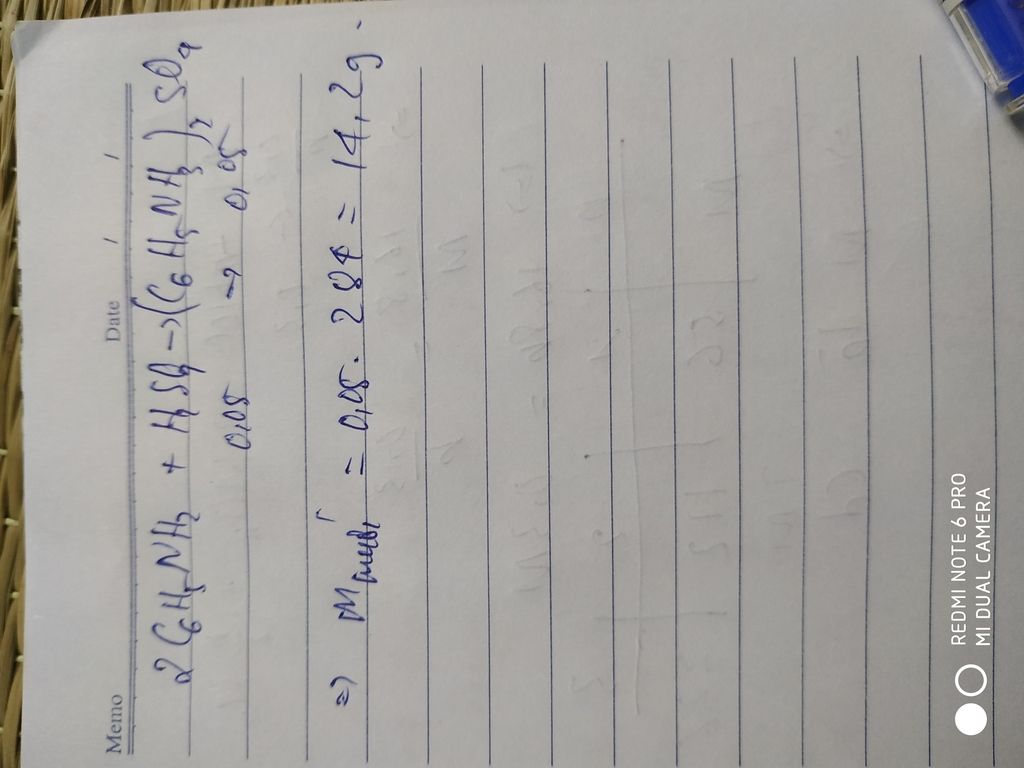 Memo Date / /
2 C6H5NH2 + H2SO4 → (C6H5NH3)2 SO4
0,05 → 0,05
=> m muối = 0,05. 284 = 14,2g.
REDMI NOTE 6 PRO
MI DUAL CAMERA